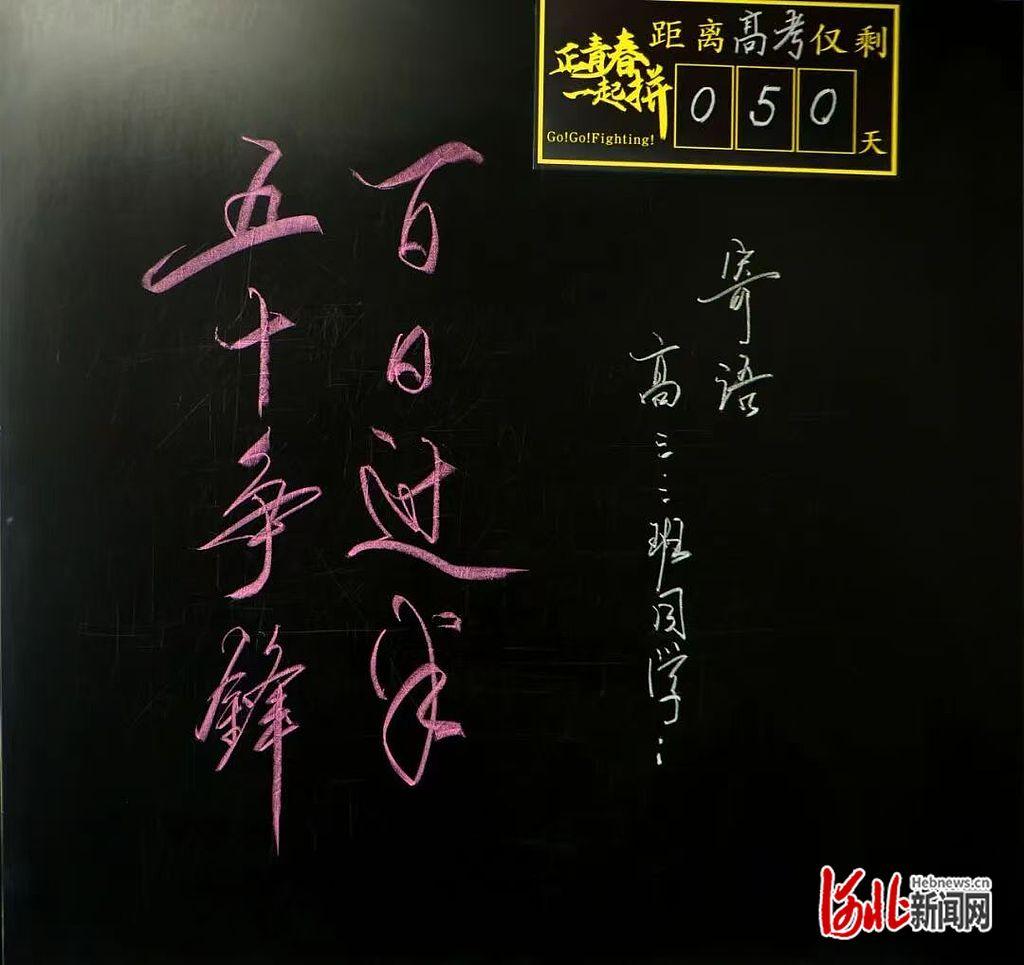 距离高考仅剩
正青春
一起拼
Go!Go!Fighting!
050
天
寄语
高三·二班同学：
百日过半
五十争鋒
Hebnews.cn
河北新闻网